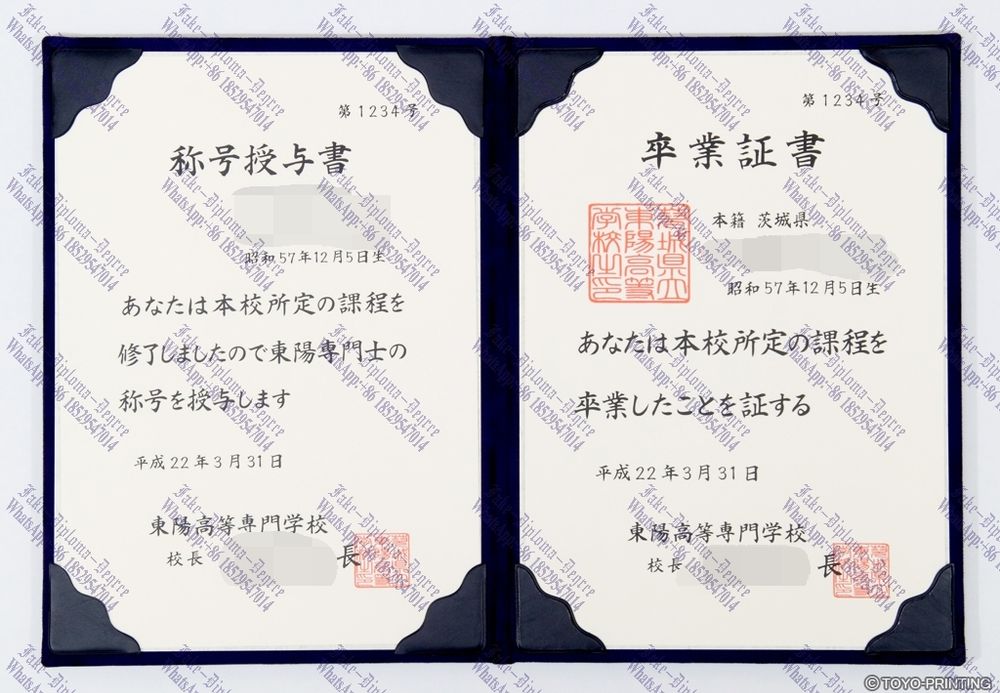 第1234号
称号授与書
昭和57年12月5日生
あなたは本校所定の課程を
修了しましたので東陽専門士の
称号を授与します
平成22年3月31日
東陽高等専門学校
校長
長
第1234号
卒業証書
本籍 茨城県
昭和57年12月5日生
あなたは本校所定の課程を
卒業したことを証する
平成22年3月31日
東陽高等専門学校
校長
長
Fake-Diploma-Degree
WhatsApp:+86 18529547014
© TOYO-PRINTING